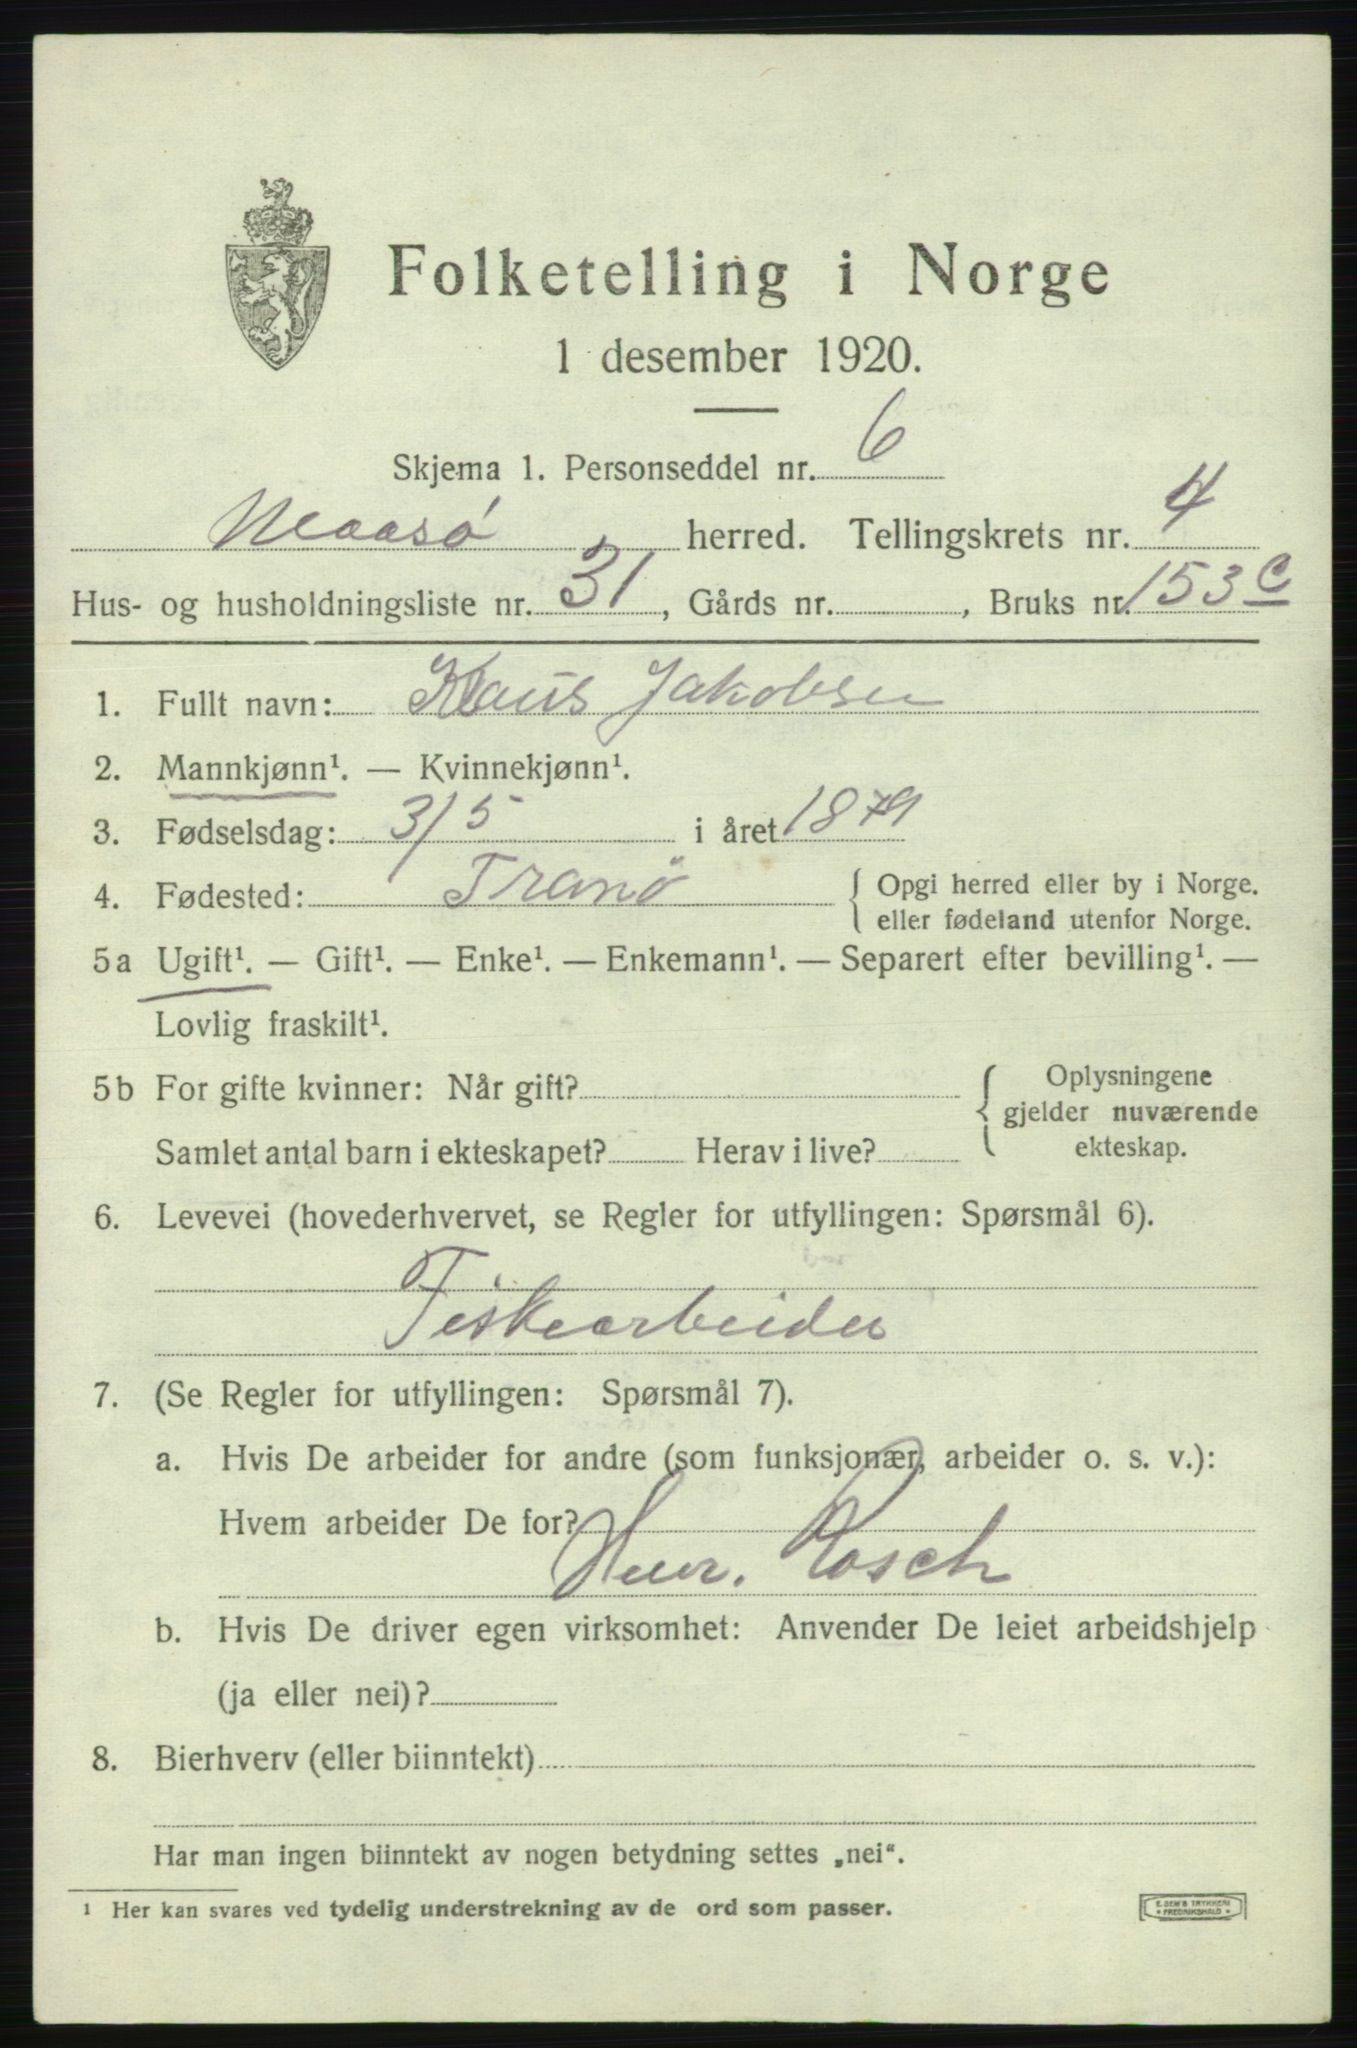 Folketelling i Norge
1 desember 1920.
Skjema 1. Personseddel nr. 6
Maasø herred. Tellingskrets nr. 4
Hus- og husholdningsliste nr. 31, Gårds nr. , Bruks nr. 153 c
1. Fullt navn: Klaus Jakobsen
2. Mannkjønn¹. — Kvinnekjønn¹.
3. Fødselsdag: 3/5 i året 1879
4. Fødested: Tranö { Opgi herred eller by i Norge.
eller fødeland utenfor Norge.
5a Ugift¹. — Gift¹. — Enke¹. — Enkemann¹. — Separert efter bevilling¹. —
Lovlig fraskilt¹.
5b For gifte kvinner: Når gift? { Oplysningene
gjelder nuværende
Samlet antal barn i ekteskapet? Herav i live? ekteskap.
6. Levevei (hovederhvervet, se Regler for utfyllingen: Spørsmål 6).
Fiskearbeider
7. (Se Regler for utfyllingen: Spørsmål 7).
a. Hvis De arbeider for andre (som funksjonær, arbeider o. s. v.):
Hvem arbeider De for?
Henr. Rosch
b. Hvis De driver egen virksomhet: Anvender De leiet arbeidshjelp
(ja eller nei)?
8. Bierhverv (eller biinntekt)
Har man ingen biinntekt av nogen betydning settes „nei“.
¹ Her kan svares ved tydelig understrekning av de ord som passer.
E. SEM'S TRYKKERI
FREDRIKSHALD